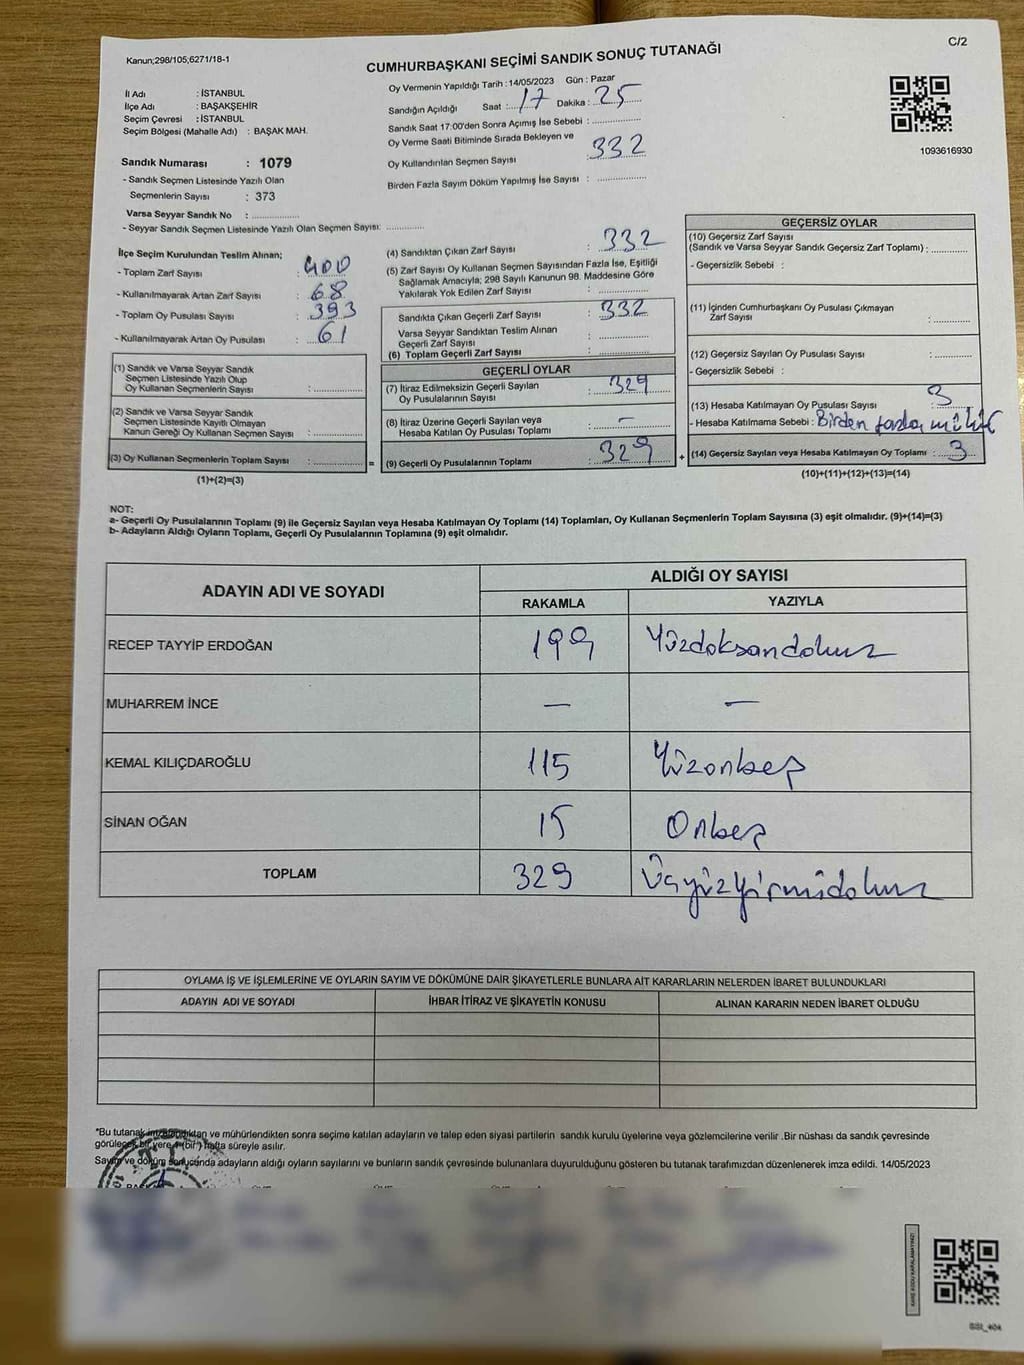 Kanun;298/105;6271/18-1
C/2
CUMHURBAŞKANI SEÇİMİ SANDIK SONUÇ TUTANAĞI
İl Adı : İSTANBUL
İlçe Adı : BAŞAKŞEHİR
Seçim Çevresi : İSTANBUL
Seçim Bölgesi (Mahalle Adı) : BAŞAK MAH.
Sandık Numarası : 1079
- Sandık Seçmen Listesinde Yazılı Olan
Seçmenlerin Sayısı : 373
Varsa Seyyar Sandık No : ..............
- Seyyar Sandık Seçmen Listesinde Yazılı Olan Seçmen Sayısı: ..............
Oy Vermenin Yapıldığı Tarih : 14/05/2023 Gün : Pazar
Sandığın Açıldığı Saat : 17 Dakika : 25
Sandık Saat 17:00'den Sonra Açımış İse Sebebi : ..............
Oy Verme Saati Bitiminde Sırada Bekleyen ve
Oy Kullandırılan Seçmen Sayısı : 332
Birden Fazla Sayım Döküm Yapılmış İse Sayısı : ..............
1093616930
İlçe Seçim Kurulundan Teslim Alınan;
- Toplam Zarf Sayısı : 400
- Kullanılmayarak Artan Zarf Sayısı : 68
- Toplam Oy Pusulası Sayısı : 393
- Kullanılmayarak Artan Oy Pusulası : 61
(1) Sandık ve Varsa Seyyar Sandık
Seçmen Listesinde Yazılı Olup
Oy Kullanan Seçmenlerin Sayısı : ..............
(2) Sandık ve Varsa Seyyar Sandık
Seçmen Listesinde Kayıtlı Olmayan
Kanun Gereği Oy Kullanan Seçmen Sayısı : ..............
(3) Oy Kullanan Seçmenlerin Toplam Sayısı : .............. =
(1)+(2)=(3)
(4) Sandıktan Çıkan Zarf Sayısı : 332
(5) Zarf Sayısı Oy Kullanan Seçmen Sayısından Fazla İse, Eşitliği
Sağlamak Amacıyla; 298 Sayılı Kanunun 98. Maddesine Göre
Yakılarak Yok Edilen Zarf Sayısı : ..............
Sandıkta Çıkan Geçerli Zarf Sayısı : 332
Varsa Seyyar Sandıktan Teslim Alınan
Geçerli Zarf Sayısı : ..............
(6) Toplam Geçerli Zarf Sayısı : ..............
GEÇERLİ OYLAR
(7) İtiraz Edilmeksizin Geçerli Sayılan
Oy Pusulalarının Sayısı : 329
(8) İtiraz Üzerine Geçerli Sayılan veya
Hesaba Katılan Oy Pusulası Toplamı : –
(9) Geçerli Oy Pusulalarının Toplamı : 329 +
GEÇERSİZ OYLAR
(10) Geçersiz Zarf Sayısı
(Sandık ve Varsa Seyyar Sandık Geçersiz Zarf Toplamı) : ..............
- Geçersizlik Sebebi :
(11) İçinden Cumhurbaşkanı Oy Pusulası Çıkmayan
Zarf Sayısı : ..............
(12) Geçersiz Sayılan Oy Pusulası Sayısı : ..............
- Geçersizlik Sebebi :
(13) Hesaba Katılmayan Oy Pusulası Sayısı : 3
- Hesaba Katılmama Sebebi : Birden fazla mühür
(14) Geçersiz Sayılan veya Hesaba Katılmayan Oy Toplamı : 3
(10)+(11)+(12)+(13)=(14)
NOT:
a- Geçerli Oy Pusulalarının Toplamı (9) ile Geçersiz Sayılan veya Hesaba Katılmayan Oy Toplamı (14) Toplamları, Oy Kullanan Seçmenlerin Toplam Sayısına (3) eşit olmalıdır. (9)+(14)=(3)
b- Adayların Aldığı Oyların Toplamı, Geçerli Oy Pusulalarının Toplamına (9) eşit olmalıdır.
ADAYIN ADI VE SOYADI ALDIĞI OY SAYISI
RAKAMLA YAZIYLA
RECEP TAYYİP ERDOĞAN 199 Yüzdoksandokuz
MUHARREM İNCE – –
KEMAL KILIÇDAROĞLU 115 Yüzonbeş
SİNAN OĞAN 15 Onbeş
TOPLAM 329 Üçyüzyirmidokuz
OYLAMA İŞ VE İŞLEMLERİNE VE OYLARIN SAYIM VE DÖKÜMÜNE DAİR ŞİKAYETLERLE BUNLARA AİT KARARLARIN NELERDEN İBARET BULUNDUKLARI
ADAYIN ADI VE SOYADI İHBAR İTİRAZ VE ŞİKAYETİN KONUSU ALINAN KARARIN NEDEN İBARET OLDUĞU
*Bu tutanak imzalandıktan ve mühürlendikten sonra seçime katılan adayların ve talep eden siyasi partilerin sandık kurulu üyelerine veya gözlemcilerine verilir .Bir nüshası da sandık çevresinde
görülecek bir yere 1 (bir ) hafta süreyle asılır.
Sayım ve döküm sonucunda adayların aldığı oyların sayılarını ve bunların sandık çevresinde bulunanlara duyurulduğunu gösteren bu tutanak tarafımızdan düzenlenerek imza edildi. 14/05/2023
KARE KODU KARALAMAYINIZ!